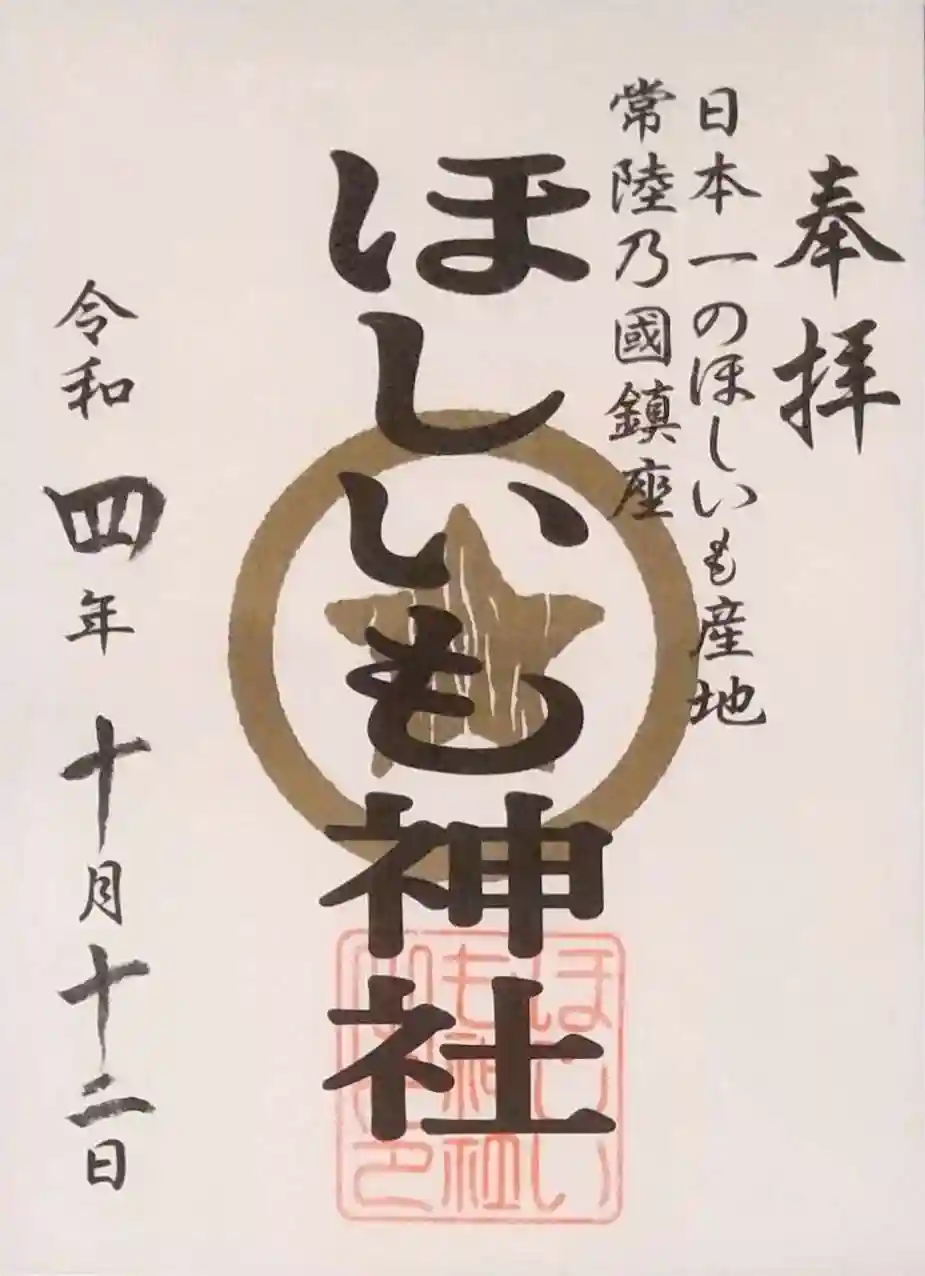 奉拝
日本一のほしいも産地
常陸乃國鎮座
ほしいも神社
ほしい
も神社
令和四年十月十二日